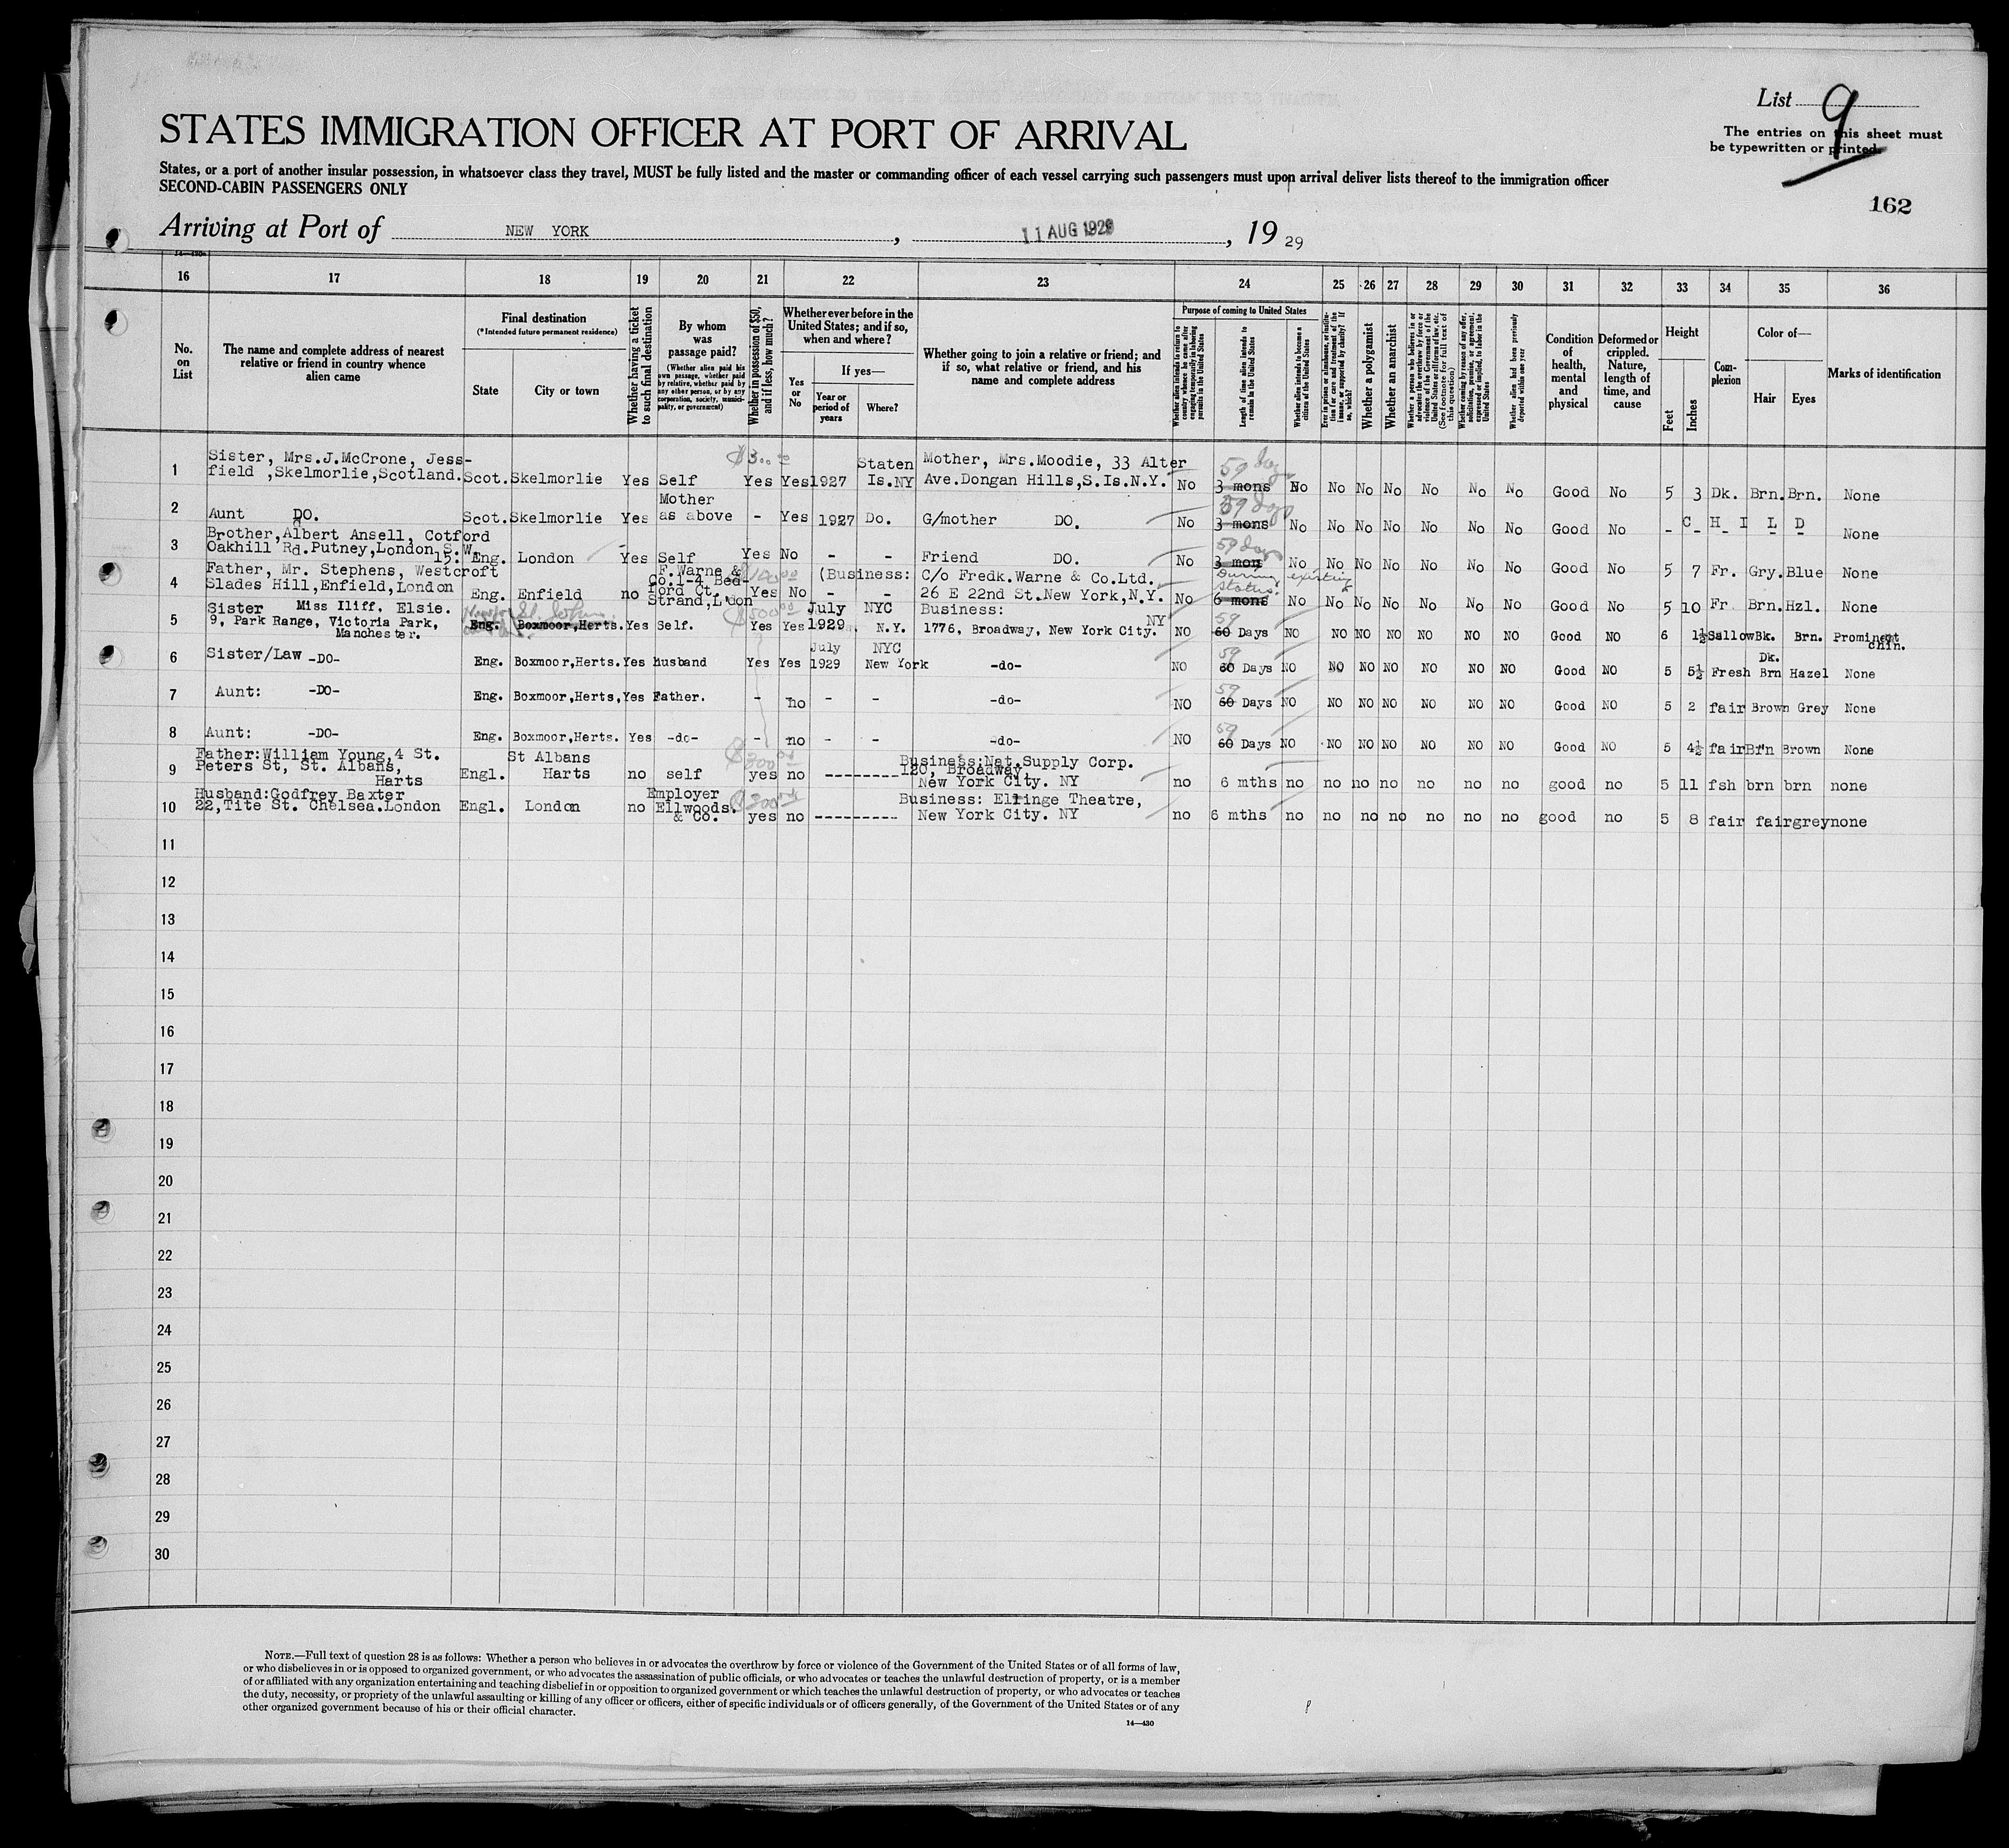 List 9
The entries on this sheet must
be typewritten or printed.
162
STATES IMMIGRATION OFFICER AT PORT OF ARRIVAL
States, or a port of another insular possession, in whatsoever class they travel, MUST be fully listed and the master or commanding officer of each vessel carrying such passengers must upon arrival deliver lists thereof to the immigration officer
SECOND-CABIN PASSENGERS ONLY
Arriving at Port of NEW YORK, 11 AUG 1929, 19 29
16 17 18 19 20 21 22 23 24 25 26 27 28 29 30 31 32 33 34 35 36
No. on List
The name and complete address of nearest relative or friend in country whence alien came
Final destination
(*Intended future permanent residence)
State
City or town
Whether having a ticket to such final destination
By whom was passage paid?
(Whether alien paid his own passage, whether paid by relative, whether paid by any other person, or by any corporation, society, municipality, or government)
Whether in possession of $50, and if less, how much?
Whether ever before in the United States; and if so, when and where?
Yes or No
If yes—
Year or period of years
Where?
Whether going to join a relative or friend; and if so, what relative or friend, and his name and complete address
Purpose of coming to United States
Whether alien intends to return to country whence he came after engaging temporarily in laboring pursuits in the United States
Length of time alien intends to remain in the United States
Whether alien intends to become a citizen of the United States
Ever in prison or almshouse, or institution for care and treatment of the insane, or supported by charity? If so, which?
Whether a polygamist
Whether an anarchist
Whether a person who believes in or advocates the overthrow by force or violence of the Government of the United States or all forms of law, etc. (See footnote for full text of this question)
Whether coming by reason of any offer, solicitation, promise, or agreement, expressed or implied, to labor in the United States
Whether alien had been previously deported within one year
Condition of health, mental and physical
Deformed or crippled. Nature, length of time, and cause
Height
Feet
Inches
Complexion
Color of—
Hair
Eyes
Marks of identification
1 Sister, Mrs.J.McCrone, Jess-
field ,Skelmorlie,Scotland. Scot. Skelmorlie Yes Self $300 Yes Yes 1927 Staten Is.NY Mother, Mrs.Moodie, 33 Alter Ave.Dongan Hills,S.Is.N.Y. No 59 days 3 mons No No No No No No No Good No 5 3 Dk. Brn. Brn. None
2 Aunt DO. Scot. Skelmorlie Yes Mother as above - Yes 1927 Do. G/mother DO. No 59 days 3 mons No No No No No No No Good No - C H I L D None
3 Brother, Albert Ansell, Cotford
Oakhill Rd.Putney,London,S.W. 15. Eng. London Yes Self Yes No - - Friend DO. No 59 days 3 mon No No No No No No No Good No 5 7 Fr. Gry. Blue None
4 Father, Mr. Stephens, Westcroft
Slades Hill,Enfield,London Eng. Enfield no F.Warne & Co.1-4 Bed-ford Ct. Strand,L'don $100 Yes No - - (Business: C/o Fredk.Warne & Co.Ltd. 26 E 22nd St.New York,N.Y. No During existing Status. 6 mons No No No No No No No Good No 5 10 Fr Brn. Hzl. None
5 Sister Miss Iliff. Elsie.
9, Park Range, Victoria Park,
Manchester. Eng. Boxmoor,Herts. St. Johns Yes Self. $500 Yes Yes July 1929 NYC N.Y. Business: NY 1776, Broadway, New York City. NO 59 60 Days NO NO NO NO NO NO NO Good NO 6 1½ Sallow Bk. Brn. Prominent chin.
6 Sister/Law -DO- Eng. Boxmoor,Herts. Yes husband Yes Yes July 1929 NYC New York -do- NO 59 60 Days NO NO NO NO NO NO NO Good NO 5 5½ Fresh Dk. Brn Hazel None
7 Aunt: -DO- Eng. Boxmoor,Herts, Yes Father. - no - - -do- NO 59 60 Days NO NO NO NO NO NO NO Good NO 5 2 fair Brown Grey None
8 Aunt: -DO- Eng. Boxmoor,Herts. Yes -do- - no - - -do- NO 59 60 Days NO NO NO NO NO NO NO Good NO 5 4½ fair Br'n Brown None
9 Father:William Young,4 St.
Peters St, St. Albans,
Harts Engl. St Albans Harts no self $300 yes no --------- Business:Nat.Supply Corp. 120, Broadway, New York City. NY no 6 mths no no no no no no no good no 5 11 fsh brn brn none
10 Husband:Godfrey Baxter
22,Tite St. Chelsea.London Engl. London no Employer Ellwoods. & Co. $200 yes no --------- Business: Eltinge Theatre, New York City. NY no 6 mths no no no no no no no good no 5 8 fair fair grey none
11
12
13
14
15
16
17
18
19
20
21
22
23
24
25
26
27
28
29
30
NOTE.—Full text of question 28 is as follows: Whether a person who believes in or advocates the overthrow by force or violence of the Government of the United States or of all forms of law,
or who disbelieves in or is opposed to organized government, or who advocates the assassination of public officials, or who advocates or teaches the unlawful destruction of property, or is a member
of or affiliated with any organization entertaining and teaching disbelief in or opposition to organized government or which teaches the unlawful destruction of property, or who advocates or teaches
the duty, necessity, or propriety of the unlawful assaulting or killing of any officer or officers, either of specific individuals or of officers generally, of the Government of the United States or of any
other organized government because of his or their official character.
14—430